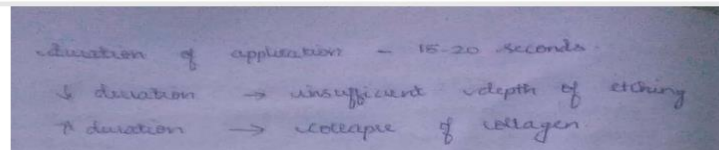 duration of application - 15-20 seconds.
↓ duration → insufficient depth of etching
↑ duration → collapse of collagen